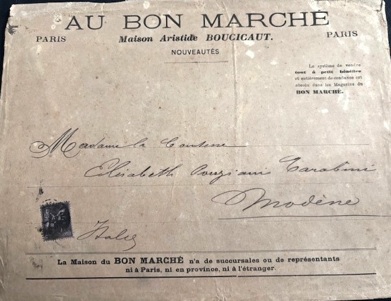 AU BON MARCHÉ
PARIS Maison Aristide BOUCICAUT. PARIS
NOUVEAUTÉS
Le système de vendre
tout à petit bénéfice
et entièrement de confiance est
absolu dans les Magasins du
BON MARCHÉ.
Madame la Comtesse
Elisabeth
Modène
Italie
La Maison du BON MARCHÉ n'a de succursales ou de représentants
ni à Paris, ni en province, ni à l'étranger.